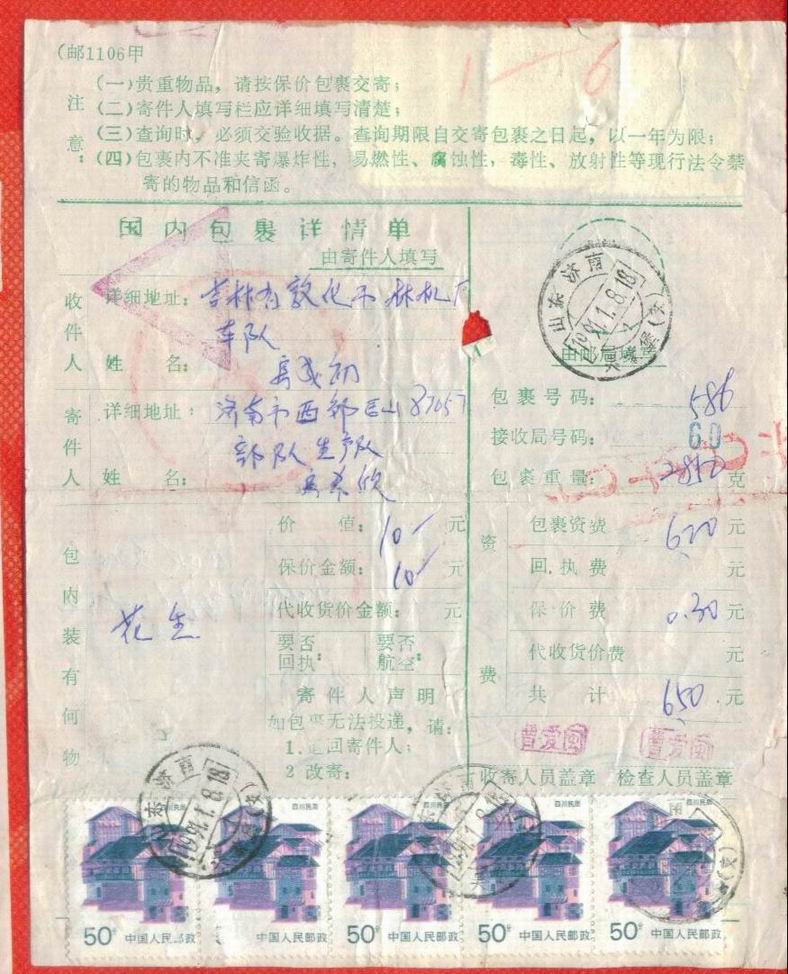 (邮1106甲
注意：
(一)贵重物品，请按保价包裹交寄；
(二)寄件人填写栏应详细填写清楚；
(三)查询时，必须交验收据。查询期限自交寄包裹之日起，以一年为限；
(四)包裹内不准夹寄爆炸性，易燃性、腐蚀性，毒性、放射性等现行法令禁
寄的物品和信函。
1—6
国内包裹详情单
由寄件人填写
收件人
详细地址：吉林省敦化市林机厂
车队
姓名：
寄件人
详细地址：济南市西郊
部队生产队
姓名：
包内装有何物
花生
价值：10元
保价金额：10元
代收货价金额：元
要否回执：
要否航空：
寄件人声明
如包裹无法投递，请：
1.退回寄件人；
2 改寄：
山东济南
1991.1.8.18
由邮局填写
包裹号码：586
接收局号码：60
包裹重量：克
资费
包裹资费 620元
回执费 元
保价费 0.30元
代收货价费 元
共计 650元
曾爱闽
曾爱闽
收寄人员盖章
检查人员盖章
山东济南
1991.1.8.18
四川民居
50分 中国人民邮政
50分 中国人民邮政
50分 中国人民邮政
50分 中国人民邮政
50分 中国人民邮政